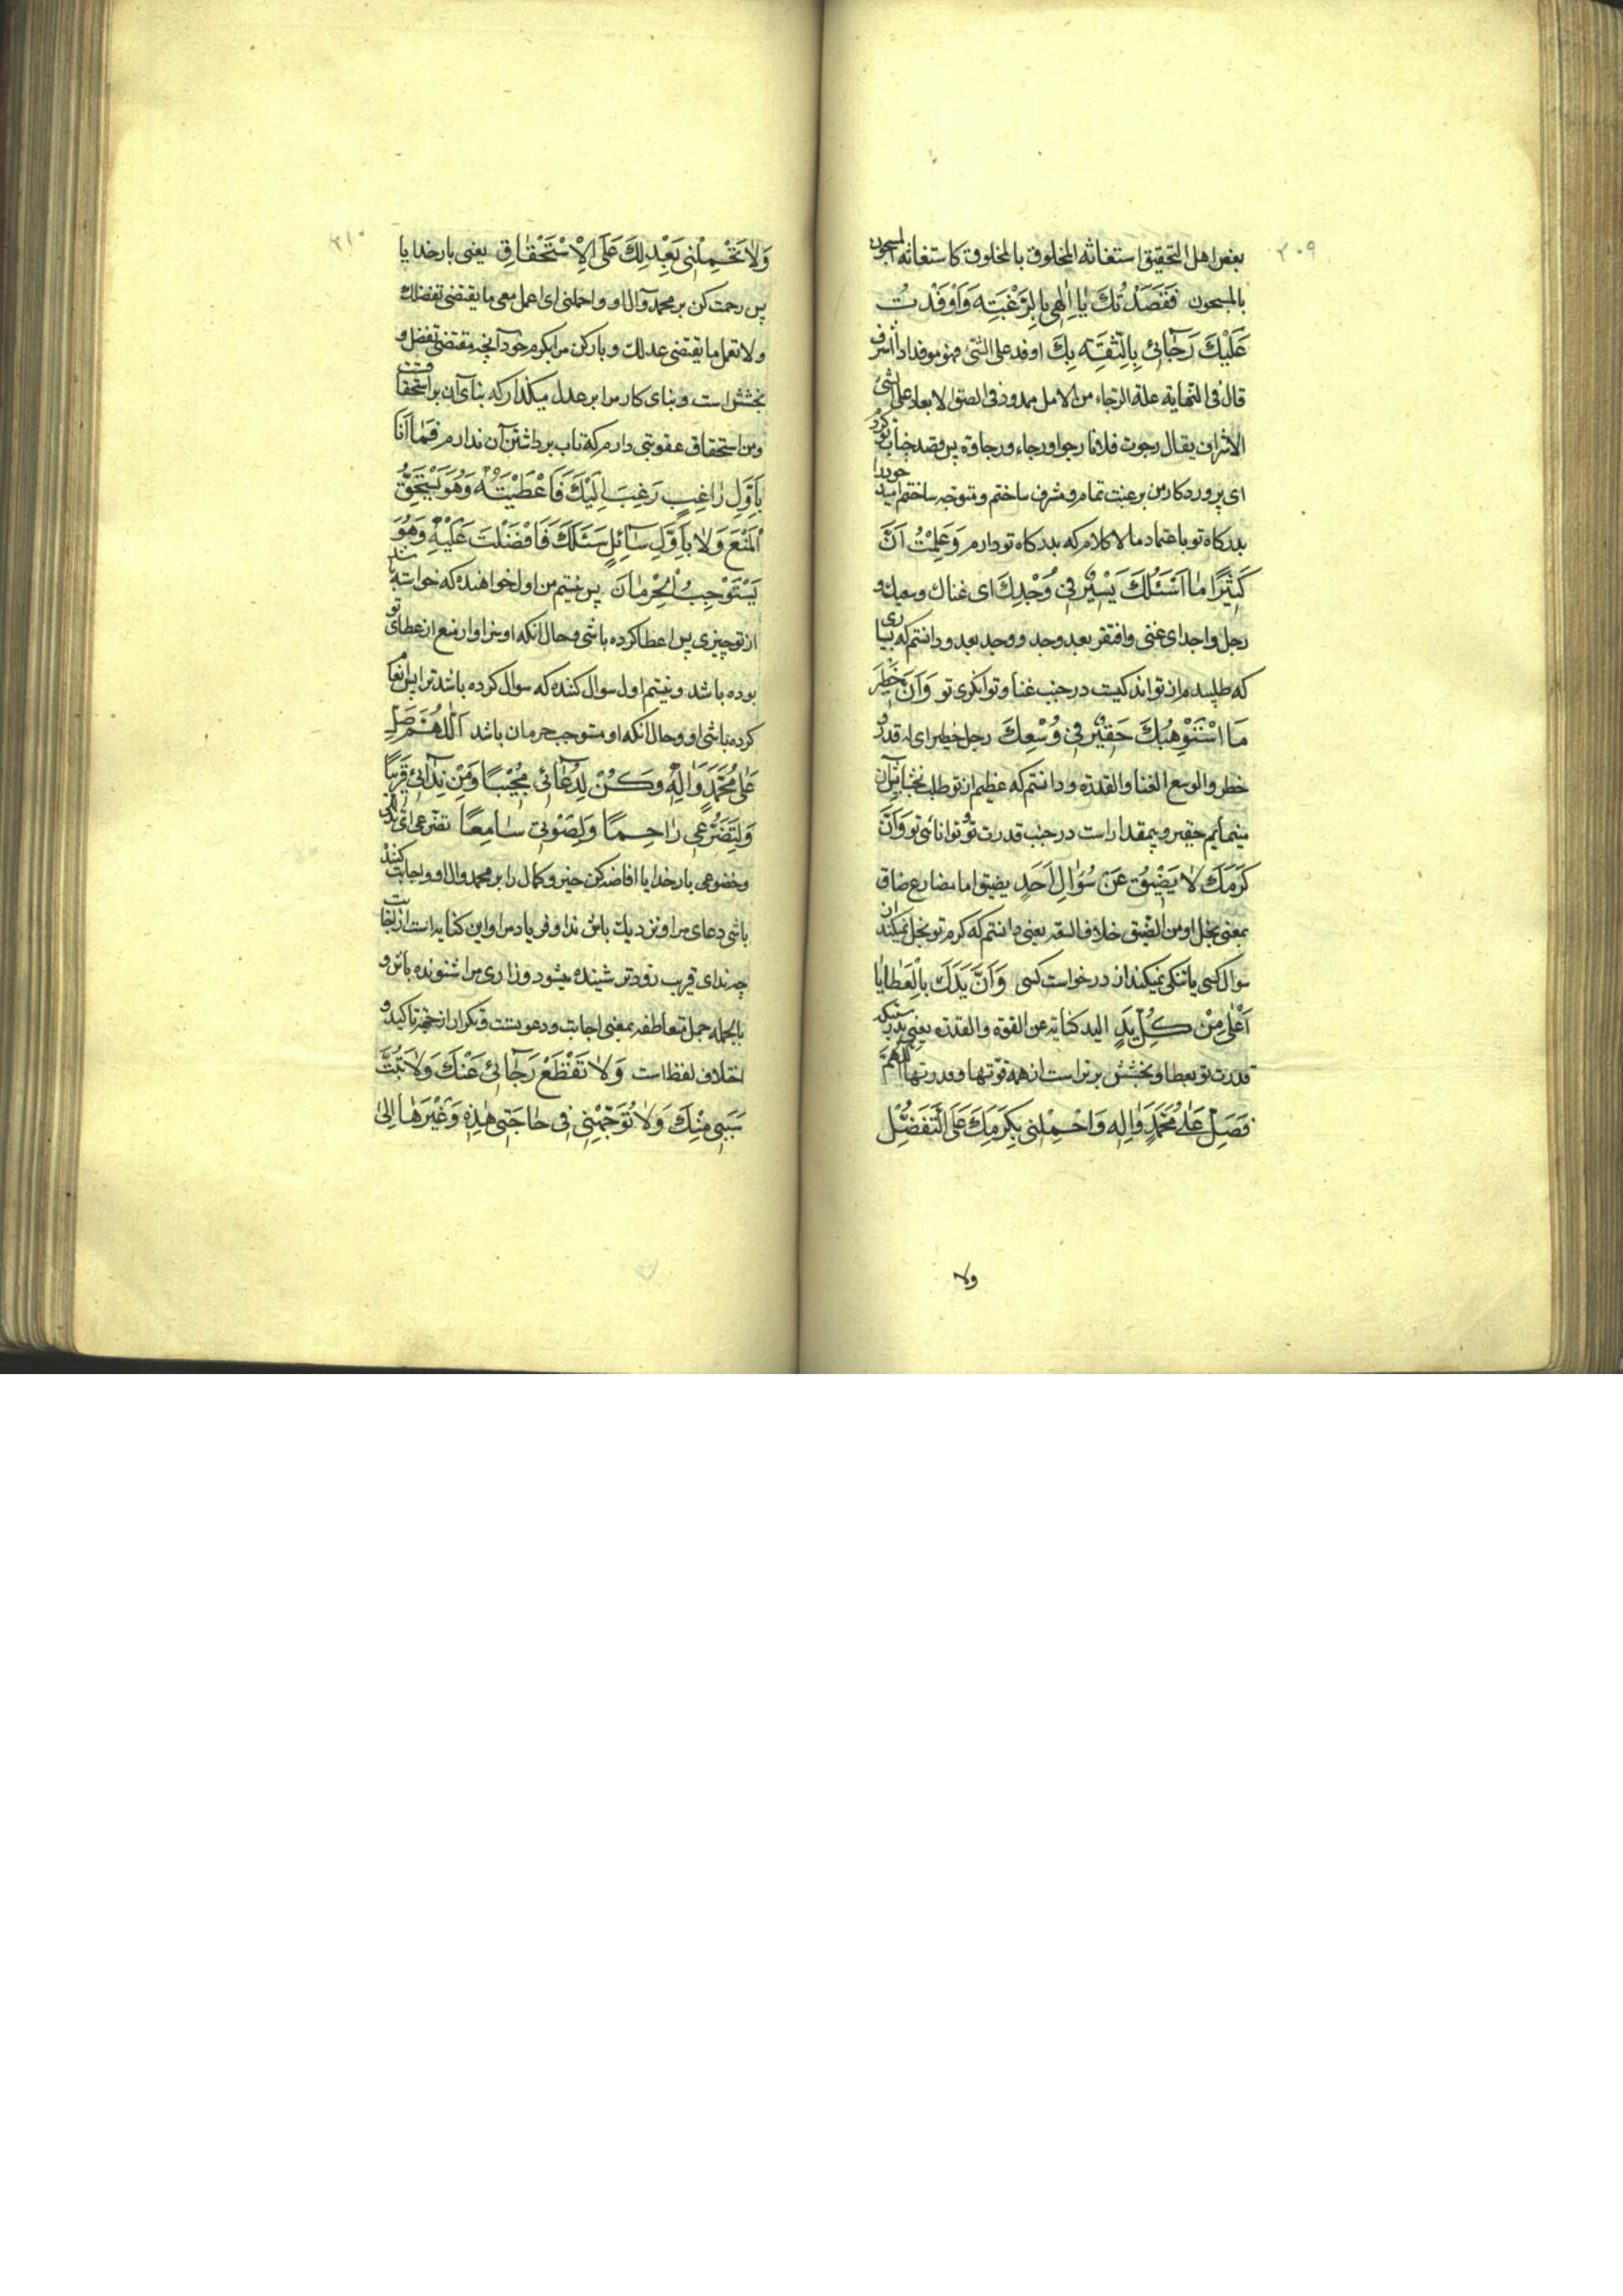 ۲۰۹
بعض اهل التحقیق استغاثه المخلوق بالمخلوق کاستغاثه المسجون
بالمسجون فَقَصَدْتُكَ یٰا اِلٰهِی بِالرَّغْبَتِهِ وَاَوْفَدْتُ
عَلَیْكَ رَجٰائی بِالثِّقَتِهِ بِكَ اوفد علی الشی فهو موفد اذا اشرف
قال فی النهایته علة الرجاء من الامل ممدود فی الصق الابعاد علی اشی
الاشراف یقال رجوت فلانا رجوا ورجاء ورجاوة پس قصد جناب تو کرد
ای پروردکار من برغبت تمام و مشرف ساختم و متوجه ساختم امید خود را
بدرکاه تو باعتماد مالاکلام که بدرکاه تو دارم وَعَلِمْتُ اَنَّ
کَثیرًا مٰا اَسْئَلُكَ یَسْیرٌ فِی وُجْدِكَ ای غناك وسعیك و
رجل واجد ای غنی وافتقر بعد وجد ووجد بعد و دانستم که بسیاری
که طلبیده‌ام از تو اندکیست در جنب غنا و توانکری تو وَاَنَّ خَطِیرَ
مٰا اسْتَوْهِبُكَ حَقیرٌ فِی وُسْعِكَ رجل خطیر ای له قدر و
خطر والوسع الغنا والقدرة و دانستم که عظیم از تو طلب بخشایش آن
مینمایم حقیر و بیمقدار است در جنب قدرت تو و توانائی تو وَاَنَّ
کَرَمَكَ لاٰ یَضیقُ عَنْ سُؤٰالِ اَحَدٍ یضیق اما مضارع ضاق
بمعنی بخل او من الضیق خلاف السعه یعنی دانستم که کرم تو بخل نمیکند از
سوال کسی یا تنکی نمیکند از درخواست کسی وَاَنَّ یَدَكَ بِالْعَطٰایٰا
اَعْلٰی مِنْ کُلِّ یَدٍ الید کنایة عن القوة والقدرة یعنی بدرستیکه
قدرت تو بعطا و بخشش برتر است از همه قوتها و قدرتها اَللّٰهُمَّ
فَصَلِّ عَلٰی مُحَمَّدٍ وَاٰلِهِ وَاحْمِلْنی بِکَرَمِكَ عَلَی التَّفَضُّلِ
ولا
۲۱۰
وَلاٰ تَحْمِلْنی بِعَدْلِكَ عَلَی الْاِسْتِحْقٰاقِ یعنی بارخدایا
پس رحمت کن بر محمد و آل او و احملنی ای اعمل معی ما یقتضی تفضلك
ولا تعمل ما یقتضی عدلك و بار کن مرا بکرم خود آنچه مقتضی تفضل و
بخشش است و بنای کار مرا بر عدل میکذار که بنای آن بر استحقاقست
و من استحقاق عقوبتی دارم که تاب برداشتن آن ندارم فَمٰا اَنَا
بِاَوَّلِ رٰاغِبٍ رَغِبَ اِلَیْكَ فَاَعْطَیْتَهُ وَهُوَ یَسْتَحِقُّ
الْمَنْعَ وَلاٰ بِاَوَّلِ سٰائِلٍ سَئَلَكَ فَاَفْضَلْتَ عَلَیْهِ وَهُوَ
یَسْتَوْجِبُ الْحِرْمٰانَ پس نیستم من اول خواهنده که خواسته باشد
از تو چیزی پس اعطا کرده باشی و حال انکه او سزاوار منع از عطای تو
بوده باشد و نیستم اول سوال کننده که سوال کرده باشد ترا پس انعام
کرده باشی او و حال انکه او مستوجب حرمان باشد اَللّٰهُمَّ صَلِّ
عَلٰی مُحَمَّدٍ وَاٰلِهِ وَکُنْ لِدُعٰائی مُجیبًا وَمِنْ نِدٰائی قَریبًا
وَلِتَضَرُّعی رٰاحِمًا وَلِصَوْتی سٰامِعًا تضرعی ای تذللی
وخضوعی بارخدایا افاضه کن خیر و کمال را بر محمد و ال او و اجابت کننده
باشی دعای مرا و نزدیك باش نداو فریاد مرا و این کنایه است از اجابت
چه ندای قریب زودتر شنیده میشود و زاری مرا شنونده باش و
بالجمله جمل متعاطفه بمعنی اجابت و دعوتست و تکرار از جهة تاکید و
اختلاف لفظ است وَلاٰ تَقْطَعْ رَجٰائی عَنْكَ وَلاٰ تَبُتَّ
سَبَبی مِنْكَ وَلاٰ تُوَجِّهْنی فِی حٰاجَتی هٰذِهِ وَغَیْرِهٰا اِلٰی